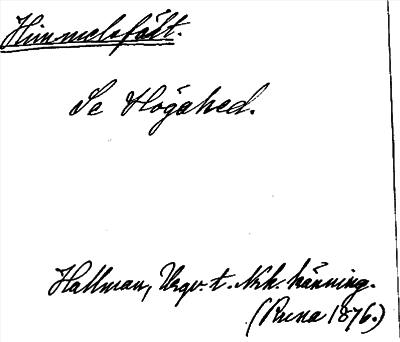 Himmelsfält.
Se Högahed.
Hallman, Urgv. t. Nrk. känning.
(Runa 1876.)